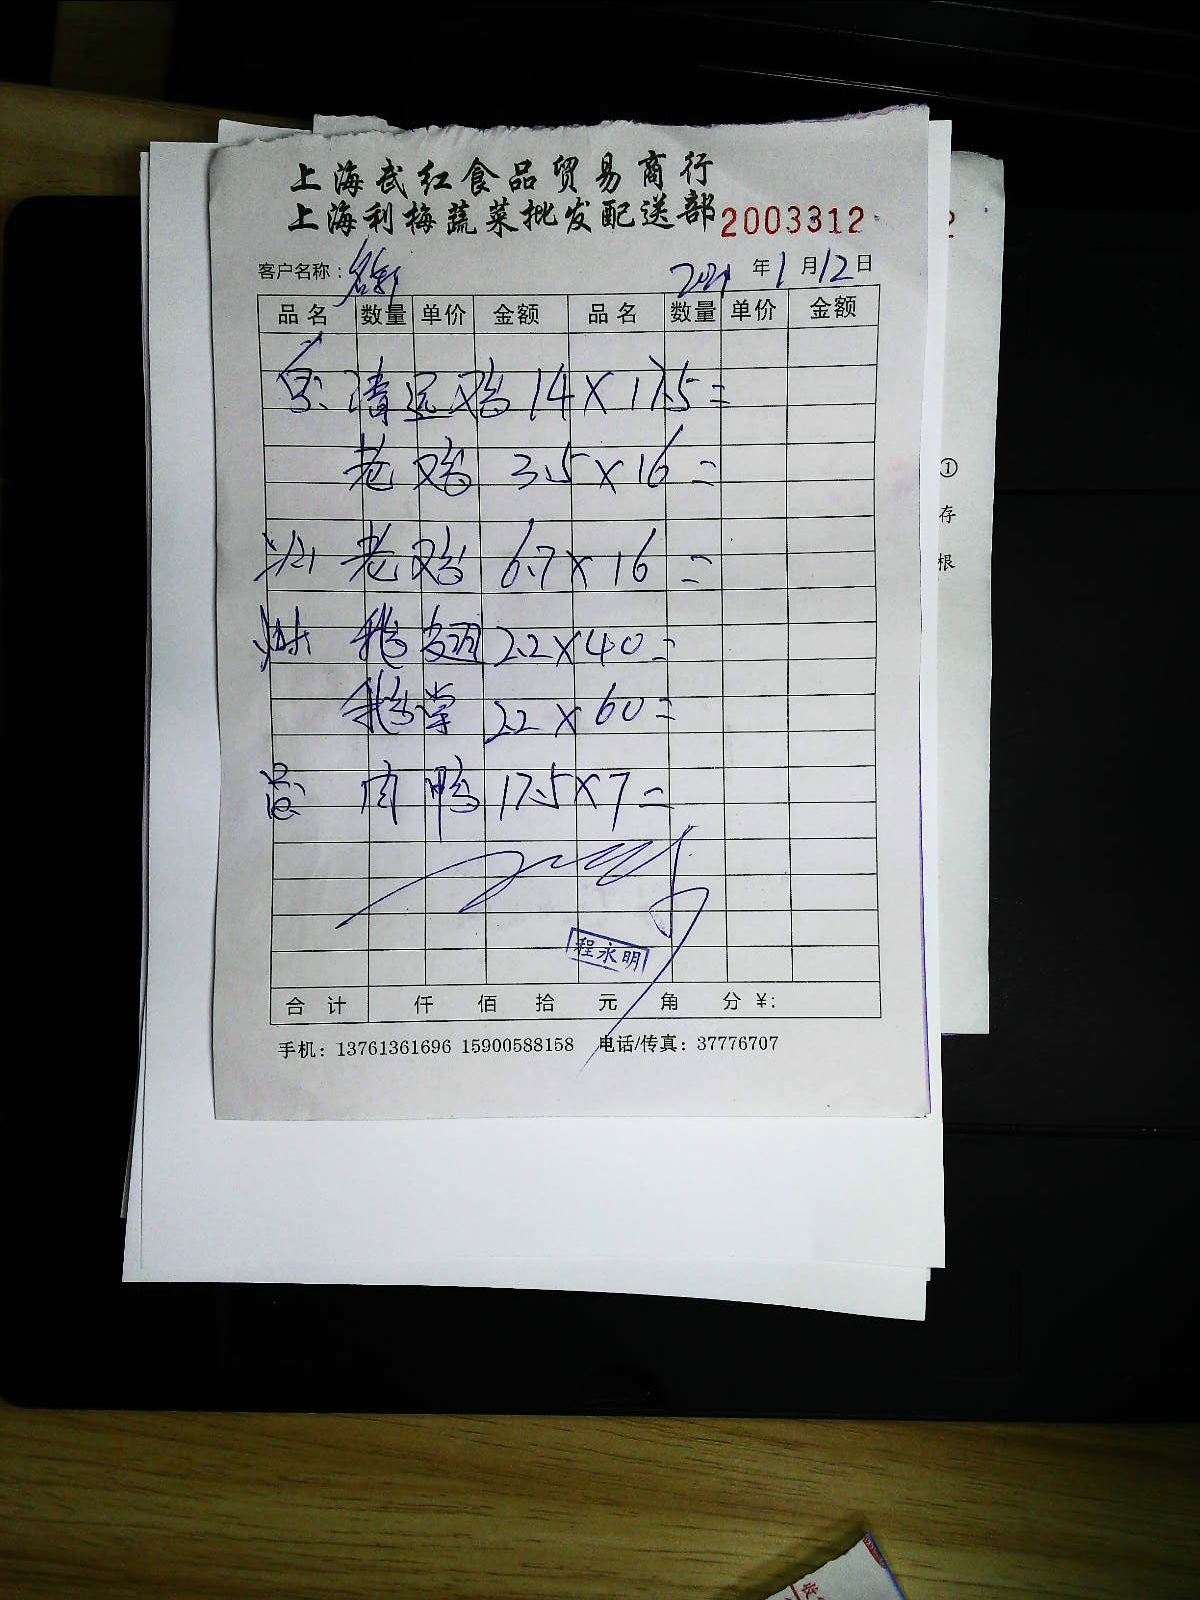 上海武红食品贸易商行
上海利梅蔬菜批发配送部 2003312
客户名称： 2021 年 1 月 12 日
品名 数量 单价 金额 品名 数量 单价 金额
清远鸡 14 × 17.5 =
老鸡 3.5 × 16 =
老鸡 6.7 × 16 =
鹅翅 2.2 × 40 =
鹅掌 2.2 × 60 =
肉鸭 17.5 × 7 =
程永明
合计 仟 佰 拾 元 角 分 ¥:
手机：13761361696 15900588158 电话/传真：37776707
2
①
存
根